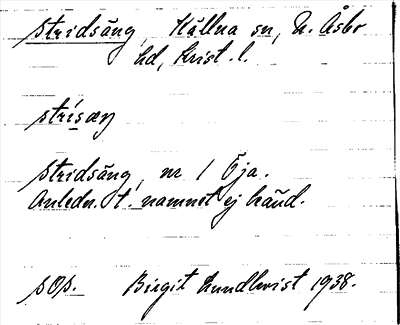 Stridsäng, Källna sn, N. Åsbo
hd, Krist. l.
strísæŋ
Stridsäng, nr 1 Öja.
Anledn. t. namnet ej känd.
sOs. Birgit Lundkvist 1938.